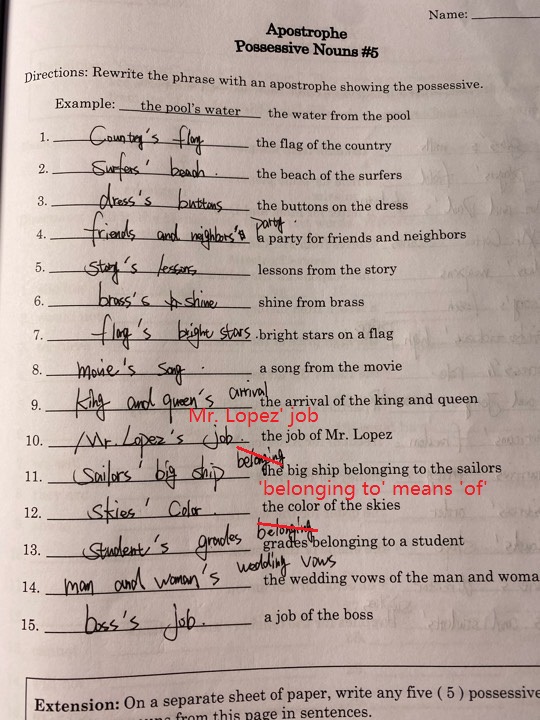 Name:
Apostrophe
Possessive Nouns #5
Directions: Rewrite the phrase with an apostrophe showing the possessive.
Example: the pool's water the water from the pool
1. Country's flag the flag of the country
2. Surfers' beach . the beach of the surfers
3. dress's buttons the buttons on the dress
party.
4. friends and neighbors' a party for friends and neighbors
5. story's lessons lessons from the story
6. brass's shine shine from brass
7. flag's bright stars . bright stars on a flag
8. movie's song . a song from the movie
arrival
9. King and queen's the arrival of the king and queen
Mr. Lopez' job
10. Mr. Lopez's job. the job of Mr. Lopez
belonging
11. Sailors' big ship the big ship belonging to the sailors
'belonging to' means 'of'
12. skies' Color . the color of the skies
belonging
13. student's grades grades belonging to a student
wedding vows
14. man and woman's the wedding vows of the man and woma
15. boss's job. a job of the boss
Extension: On a separate sheet of paper, write any five ( 5 ) possessive
from this page in sentences.